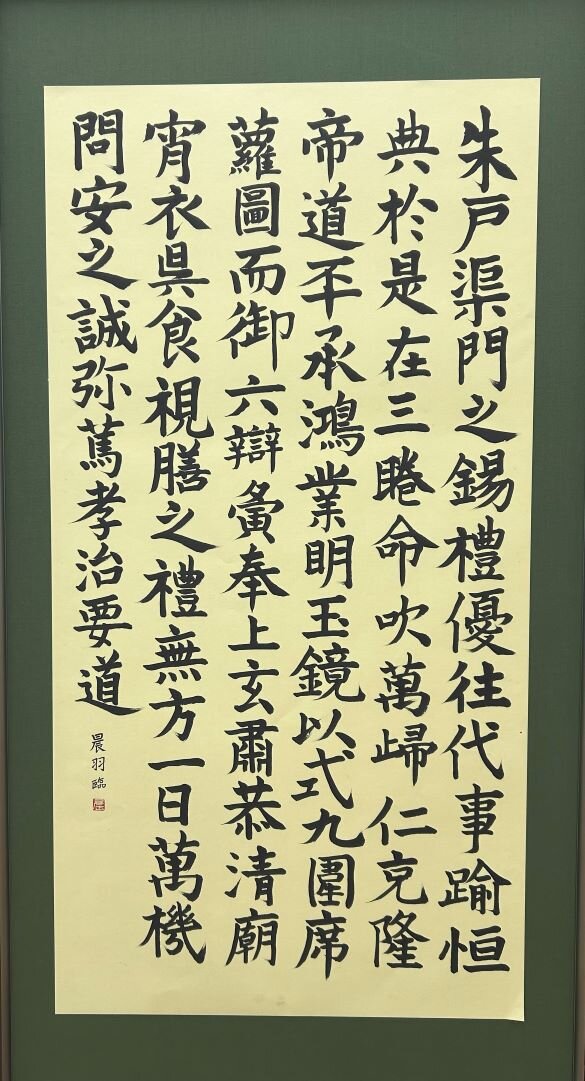 朱戶渠門之錫禮優往代事踰恒
典於是在三睠命吹萬歸仁克隆
帝道丕承鴻業明玉鏡以式九圍席
蘿圖而御六辯寅奉上玄肅恭清廟
宵衣昃食視膳之禮無方一日萬機
問安之誠弥篤孝治要道
晨羽臨